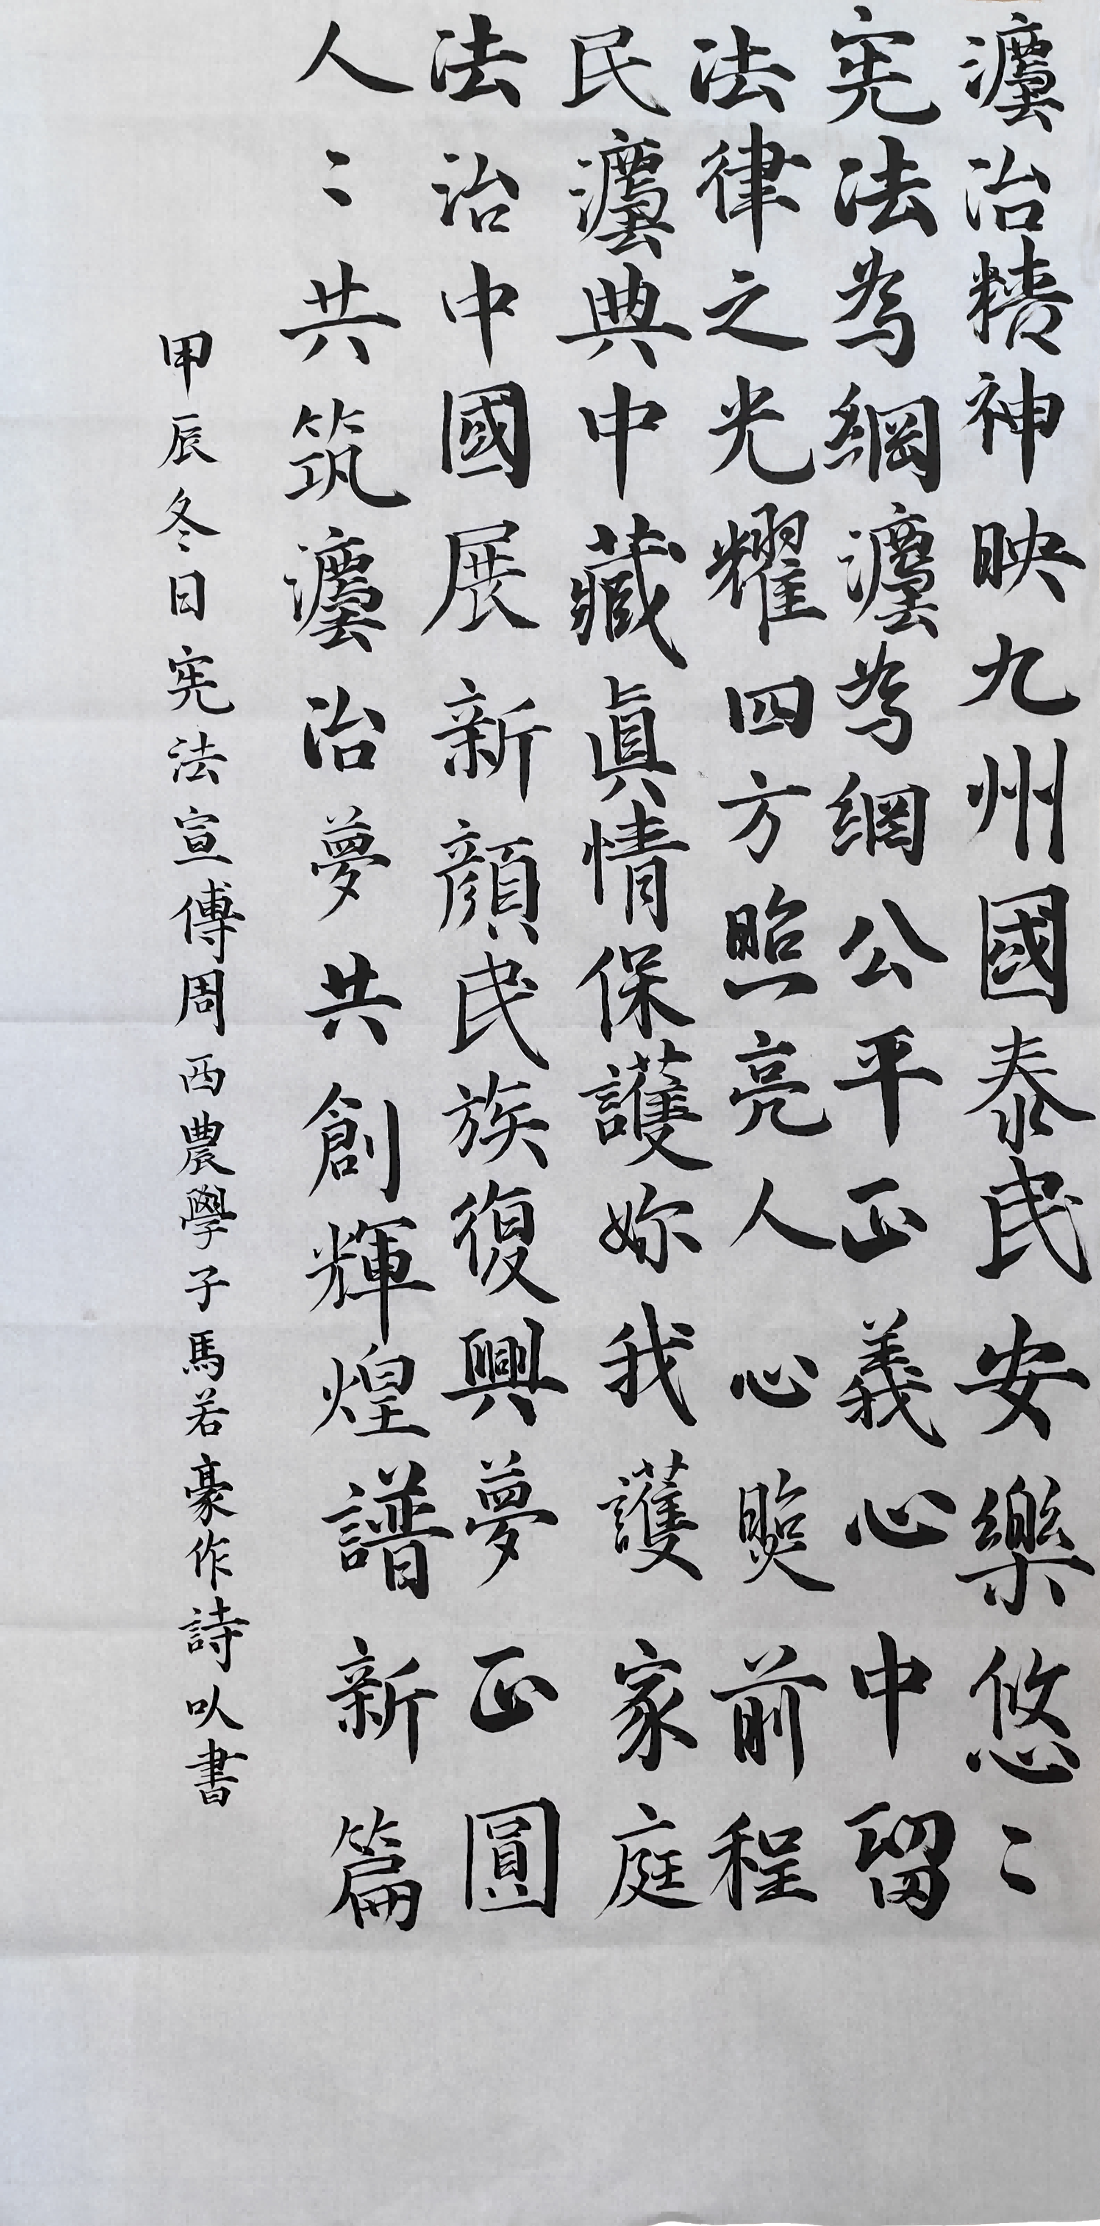 灋治精神映九州國泰民安樂悠〻
宪法為綱灋為網公平正義心中留
法律之光耀四方照亮人心照前程
民灋典中藏眞情保護妳我護家庭
法治中國展新顔民族復興夢正圓
人〻共筑灋治夢共創輝煌譜新篇
甲辰冬日宪法宣傳周西農學子馬若豪作詩以書